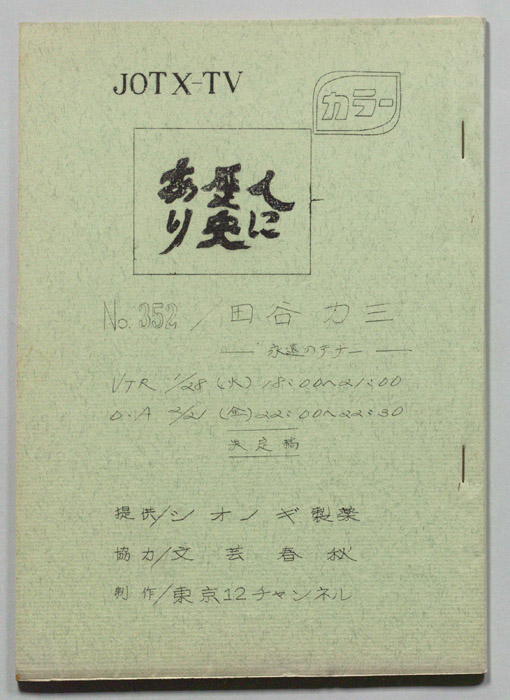 JOTX-TV
カラー
人に
歴史
あり
No.352/田谷力三
― 永遠のテナー ―
VTR 1/28 (火) 18:00〜21:00
O.A 2/21 (金) 22:00〜22:30
決定稿
提供/シオノギ製薬
協力/文芸春秋
制作/東京12チャンネル